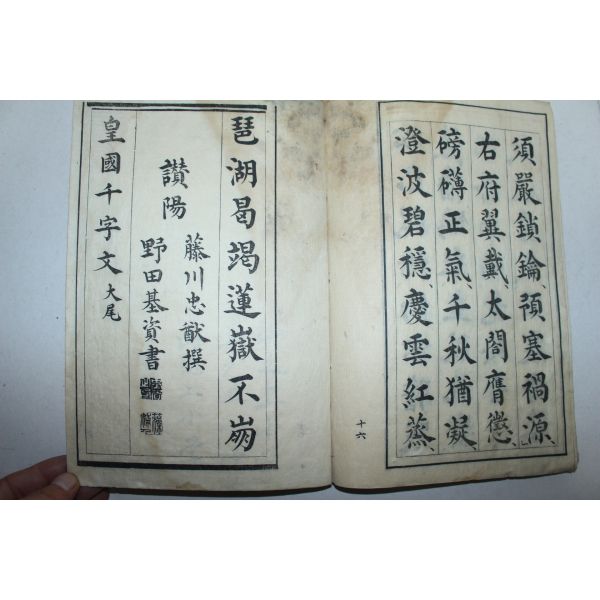 須嚴鎖鑰、預塞禍源、
右府翼戴、太閤膺懲、
磅礴正氣、千秋猶凝、
澄波碧穩、慶雲紅蒸、
十六
琶湖曷竭蓮嶽不崩
讃陽
藤川忠猷撰
野田基資書
皇國千字文大尾